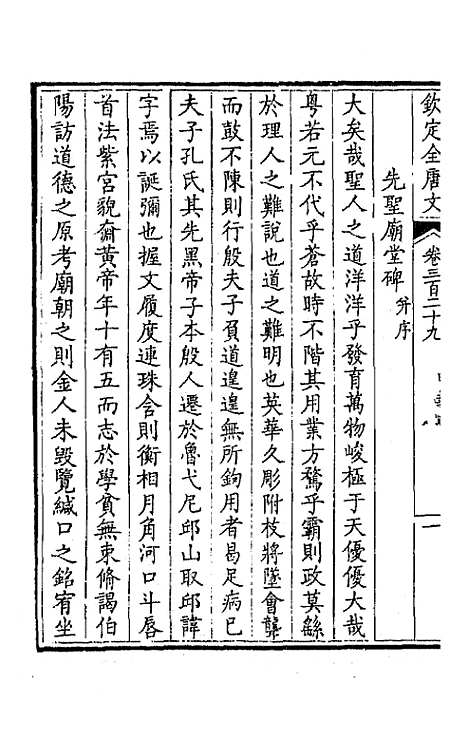 欽定全唐文 卷三百二十九 一
先聖廟堂碑并序
大矣哉聖人之道洋洋乎發育萬物峻極于天優優大哉
粵若元不代乎蒼故時不階其用業方騖乎霸則政莫繇
於理人之難說也道之難明也英華久彫附枝將墜會龔
而鼓不陳則行殷夫子負道遑遑無所鉤用者曷足病已
夫子孔氏其先黑帝子本殷人遷於魯弋尼邱山取邱諱
字焉以誕彌也握文履度連珠含則衡相月角河口斗唇
首法紫宮貌齎黃帝年十有五而志於學貧無束脩謁伯
陽訪道德之原考廟朝之則金人未毀覽緘口之銘宥坐